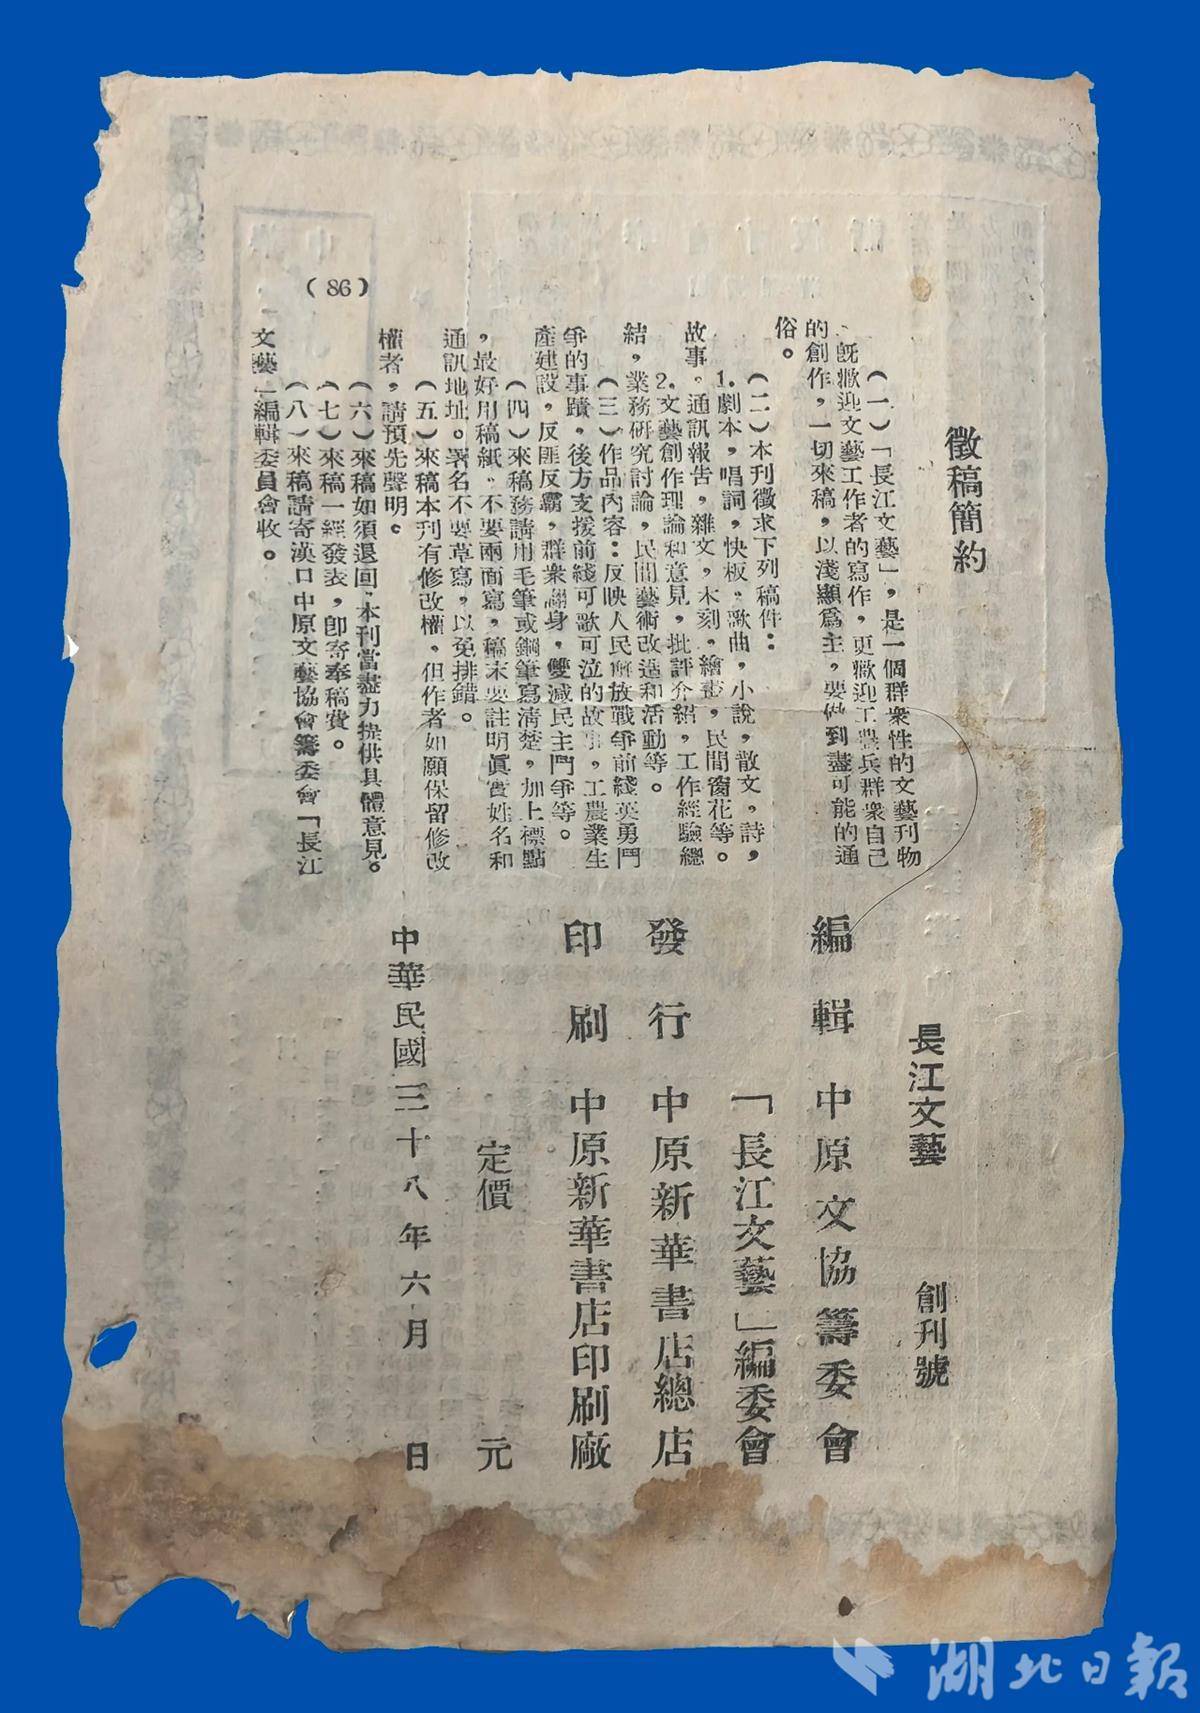 徵稿簡約
（一）「長江文藝」，是一個群衆性的文藝刊物
，旣歡迎文藝工作者的寫作，更歡迎工農兵群衆自己
的創作，一切來稿，以淺顯爲主，要做到盡可能的通
俗。
（二）本刊徵求下列稿件：
1.劇本，唱詞，快板，歌曲，小說，散文，詩，
故事，通訊報告，雜文，木刻，繪畫，民間窗花等。
2.文藝創作理論和意見，批評介紹，工作經驗總
結，業務研究討論，民間藝術改造和活動等。
（三）作品內容：反映人民解放戰爭前綫英勇鬥
爭的事蹟，後方支援前綫可歌可泣的故事，工農業生
產建設，反匪反霸，群衆翻身，雙減民主鬥爭等。
（四）來稿務請用毛筆或鋼筆寫清楚，加上標點
，最好用稿紙，不要兩面寫，稿末要註明眞實姓名和
通訊地址。署名不要草寫，以免排錯。
（五）來稿本刊有修改權，但作者如願保留修改
權者，請預先聲明。
（六）來稿如須退回，本刊當盡力提供具體意見。
（七）來稿一經發表，卽寄奉稿費。
（八）來稿請寄漢口中原文藝協會籌委會「長江
文藝」編輯委員會收。
（86）
長江文藝 創刊號
編輯 中原文協籌委會
「長江文藝」編委會
發行 中原新華書店總店
印刷 中原新華書店印刷廠
定價 元
中華民國三十八年六月 日
湖北日報